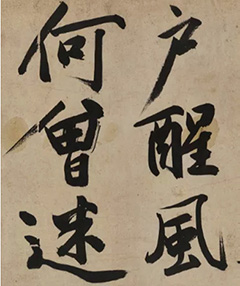 户醒風
何曾迷